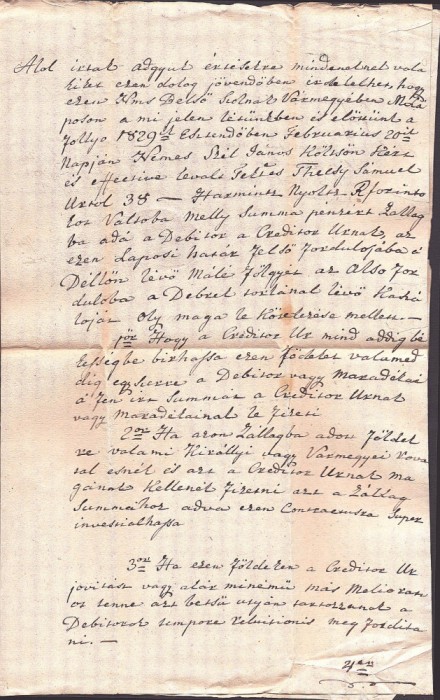 Alol irtat adgyut értésekre mindeneknek vala
kiket ezen dolog jövendőben irdekelhet, hogy
ezen Nms Belső Solnak Vármegyében
poson a mi jelen létünkben és előttünk a
folyo 1829ik Esztendőben Februarius 20ik
Napján Nemes Szél János költsön kért
és effective levale Tettes Thelsy Sámuel
Urtol 38 — Harmintz Nyoltz Rforinto
kot Váltoba melly Summa pénzért Zállag
ba adá a Debitor a Creditor Urnak, az
ezen Laposi határ Felső Fordulojába á
Déllőn lévő Málé Földgyét az Also For
duloba a Debret torkánál lévő Kaszá
loját oly maga le kötelezése mellett —
1ör Hogy a Creditor Ur mind addig bé
kességbe birhassa ezen földeket valamed
dig egyszerre a Debitor vagy Maradékai
á fen irt Summát a Creditor Urnak
vagy maradékainak le fizeti
2or Ha azon Zállagba adot Földek
re valami Királlyi vagy Vármegyei rova
tal esnék és azt a Creditor Urnak ma
gának kellenék fizetni azt a Zállag
Summához adva ezen Contractusra Super
investialhassa
3or Ha ezen földeken a Creditor Ur
jovitást vagy akár minémű más Melioratio
ot tenne azt betsű utyán tartozzanak a
Debitorok tempore reluitionis meg fordita
ni. —
4er